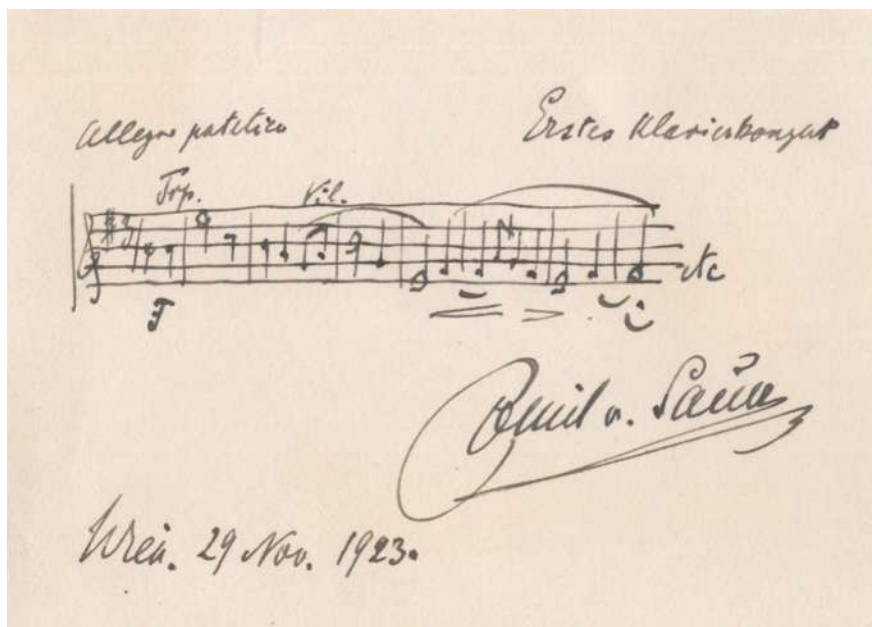 Allegro patetico
Erstes Klavierkonzert
Trp. Vil.
etc
Emil v. Sauer
Wien. 29 Nov. 1923.